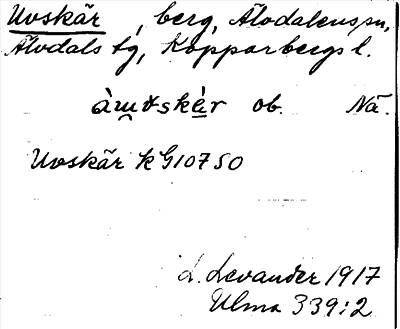 Uvskär, berg, Älvdalens sn,
Älvdals tg, Kopparbergs l.
ob. Nä.
Uvskär k G10750
L. Levander 1917
Ulma 339:2